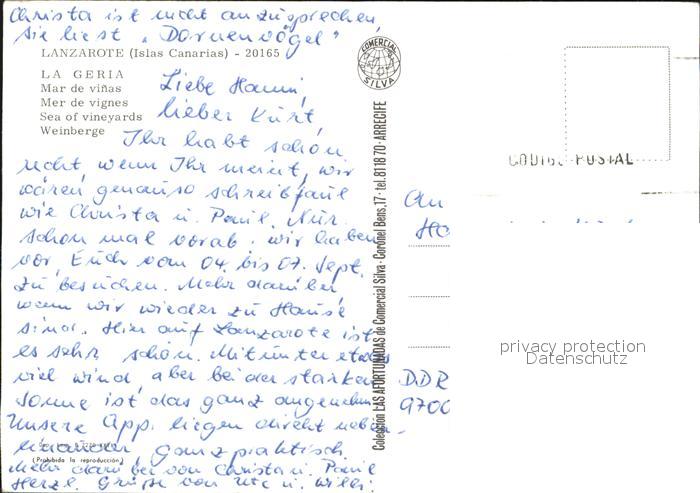 Christa ist nicht anzusprechen,
sie liest "Dornenvögel"
LANZAROTE (Islas Canarias) - 20165
LA GERIA
Mar de viñas
Mer de vignes
Sea of vineyards
Weinberge
Liebe Hanni,
lieber Kurt,
Ihr habt schon
recht wenn Ihr meint, wir
wären genauso schreibfaul
wie Christa u. Paul. Nur
schon mal vorab. wir haben
vor, Euch vom 04. bis 07. Sept.
zu besuchen. Mehr darüber
wenn wir wieder zu Hause
sind. Hier auf Lanzarote ist
es sehr schön. Mitunter etwas
viel Wind, aber bei der starken
Sonne ist das ganz angenehm.
Unsere App. liegen direkt neben-
einander, ganz praktisch.
Mehr darüber von Christa u. Paul
Herzl. Grüße von Ute u. Willi
(Prohibida la reproducción)
COMERCIAL
SILVA
Colección LAS AFORTUNADAS de Comercial Silva - Cardenal Bens, 17 - tel. 81 18 70 - ARRECIFE
CODIGO POSTAL
An
DDR
9700
privacy protection
Datenschutz